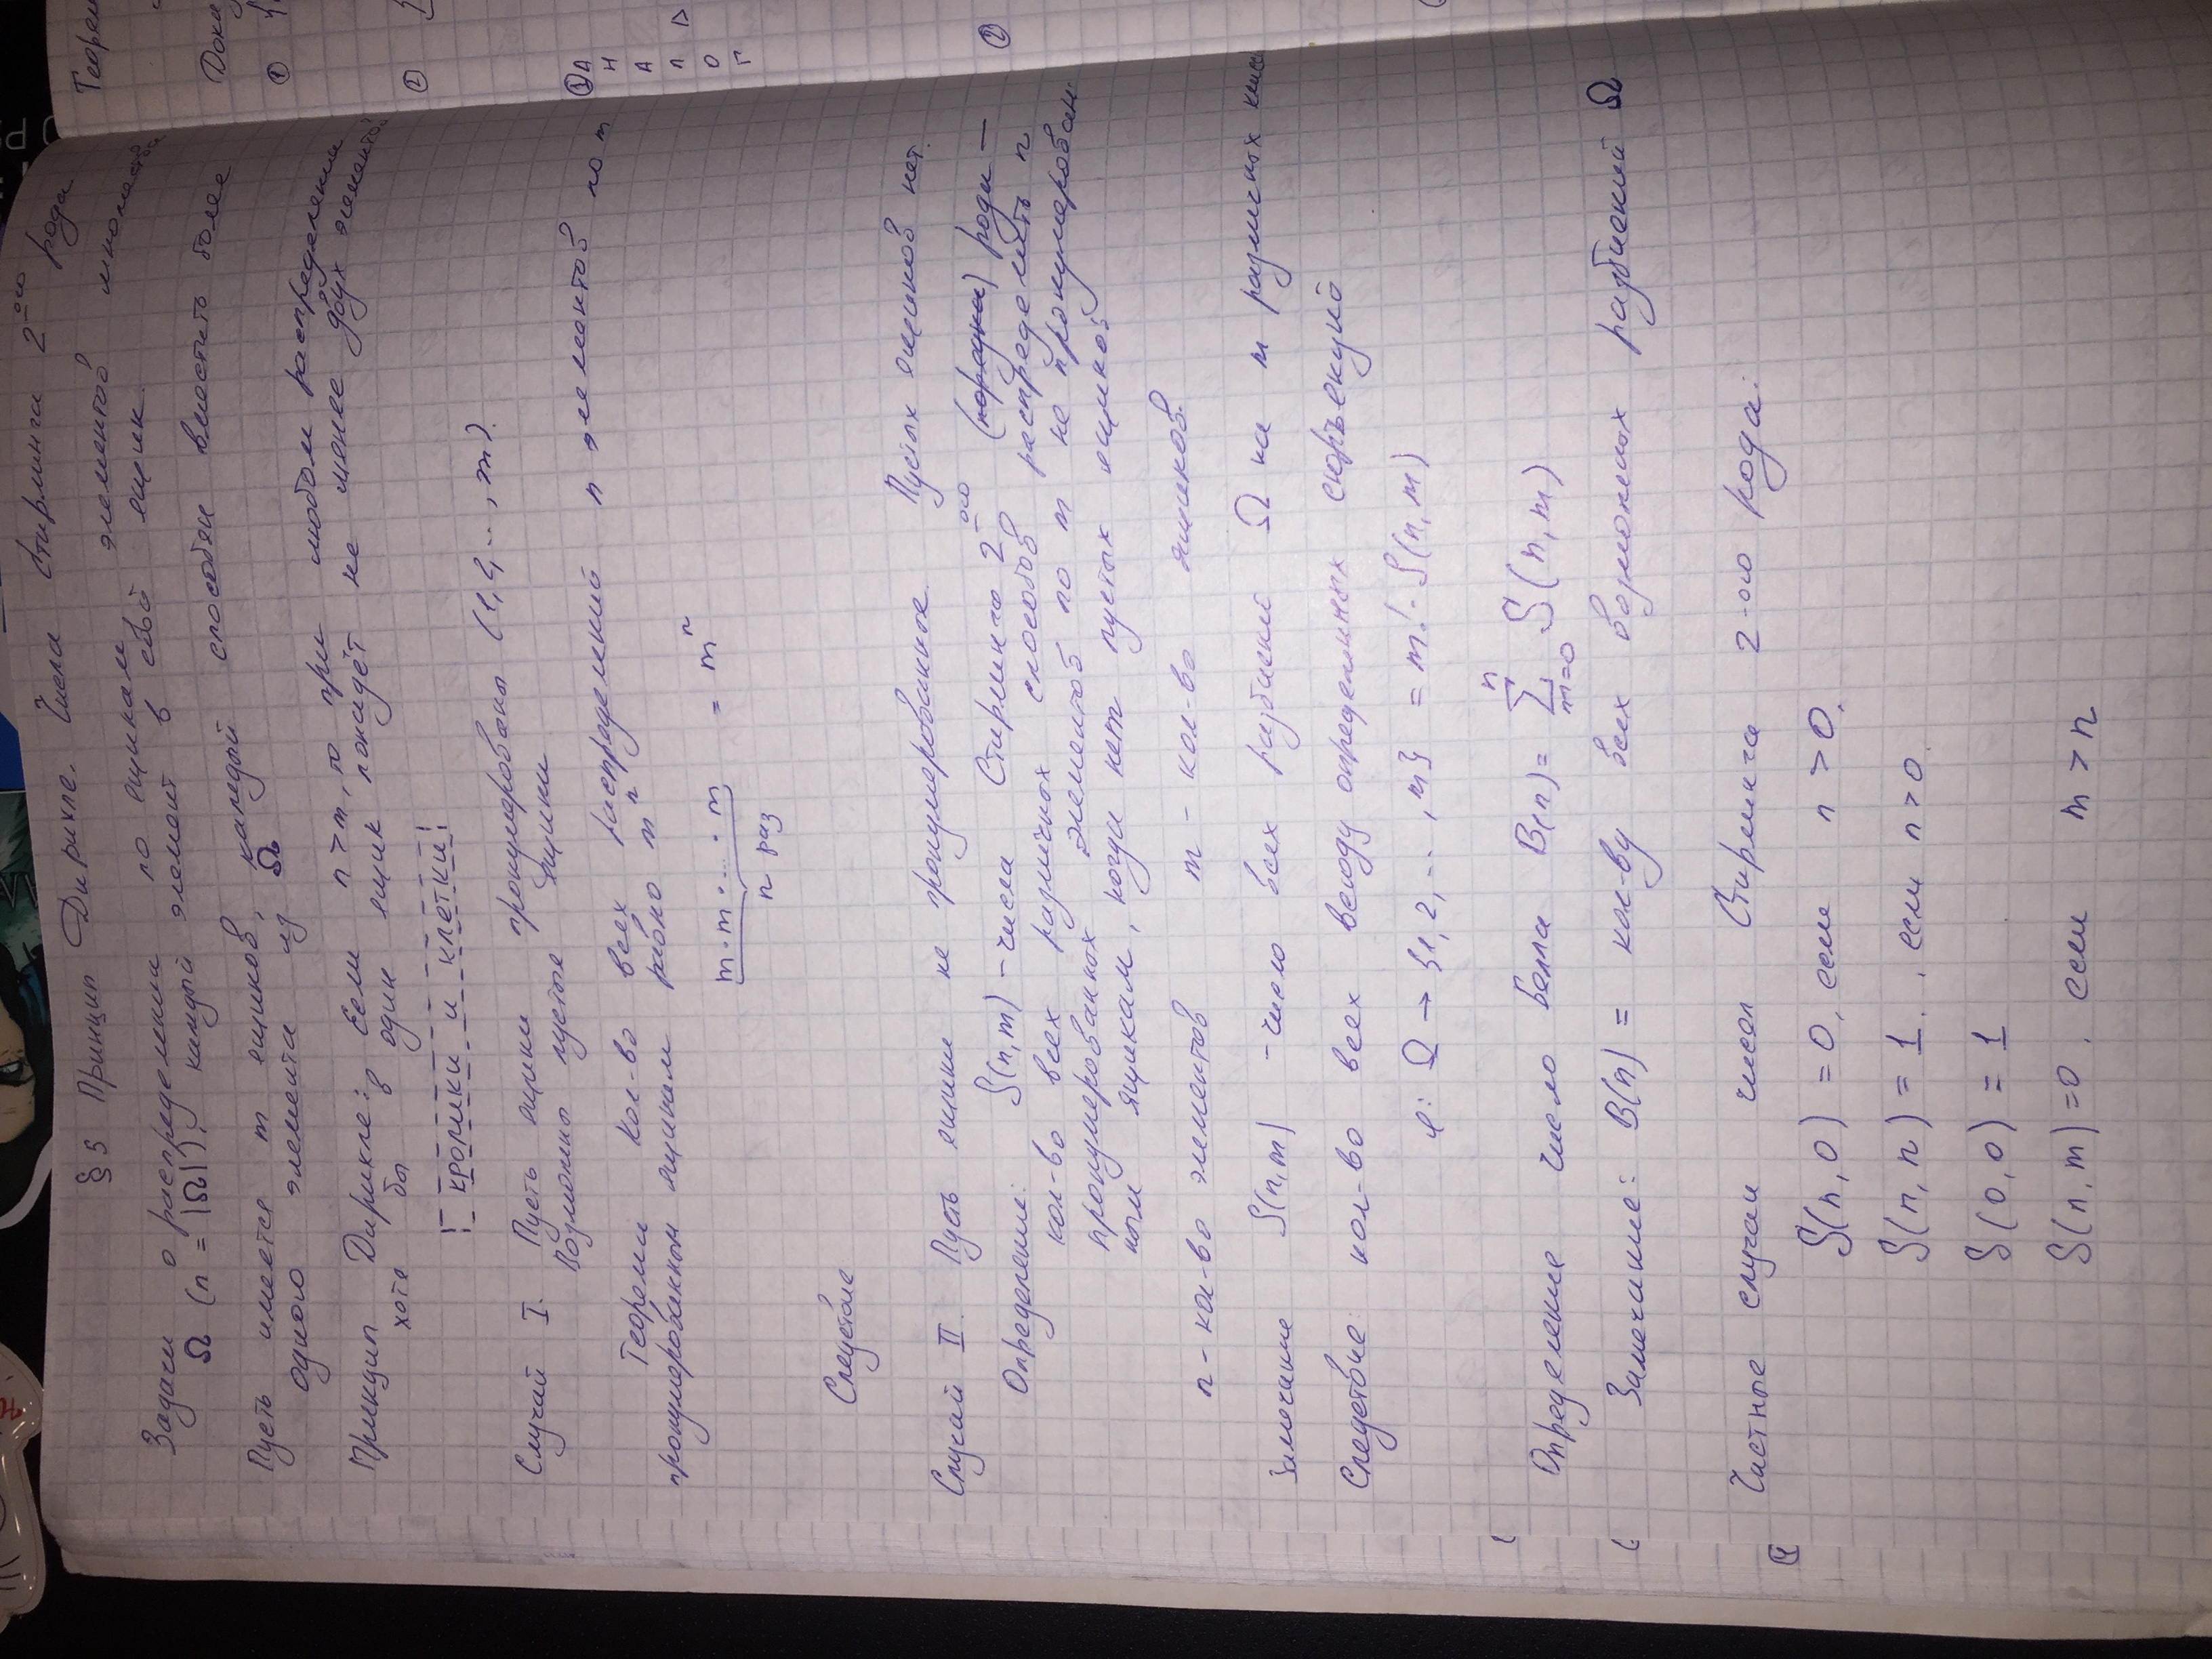 §5 Принцип Дирихле. Числа Стирлинга 2ого рода
Задачи о распределении по ящикам элементов множества
Ω (n = |Ω|); каждый элемент в свой ящик.
Пусть имеется m ящиков, каждый способен вместить более
одного элемента из Ω
Принцип Дирихле: Если n > m, то при любом распределении
хотя бы в один ящик попадёт не менее двух элементов
кролики и клетки
Случай I. Пусть ящики пронумерованы (1, 2, ..., m).
Возможны пустые ящики
Теорема Кол-во всех распределений n элементов по m
пронумерованным ящикам равно mⁿ
m·m·...·m = mⁿ
n раз
Следствие
Случай II. Пусть ящики не пронумерованные. Пустых ящиков нет.
Определение: S(n,m) – числа Стирлинга 2ого (порядка) рода –
кол-во всех различных способов распределить n
пронумерованных элементов по m не пронумерован-
ным ящикам, когда нет пустых ящиков
n – кол-во элементов m – кол-во ящиков.
Замечание S(n,m) – число всех разбиений Ω на m различных класс
Следствие: кол-во всех всюду определённых сюръекций
φ: Ω → {1, 2, ..., m} = m! · S(n,m)
Определение число Белла B(n) = ∑ⁿₘ₌₀ S(n,m)
Замечание: B(n) = кол-ву всех возможных разбиений Ω
Частные случаи чисел Стирлинга 2-ого рода:
S(n,0) = 0, если n > 0.
S(n,n) = 1, если n > 0.
S(0,0) = 1
S(n,m) = 0, если m > n
④
Теорем
Дока
①
②
③ А
Н
А
Л
О
Г
②